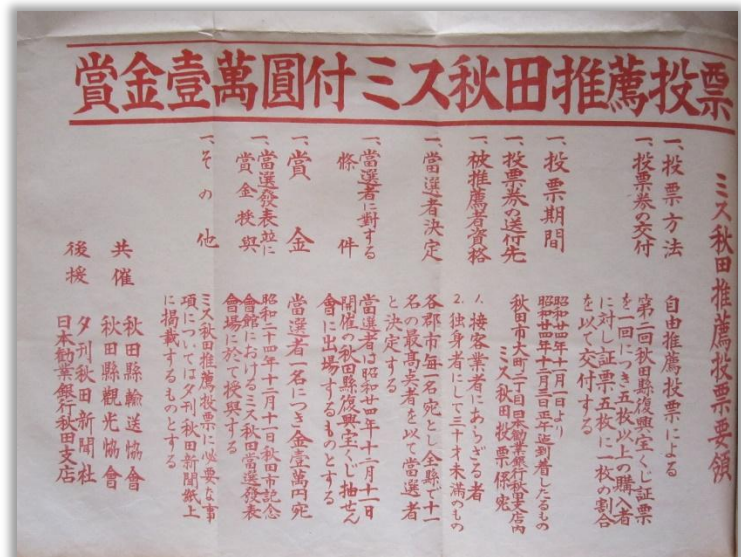 賞金壹萬圓付ミス秋田推薦投票
ミス秋田推薦投票要領
一、投票方法
自由推薦投票による
一、投票券の交付
第二回秋田縣復興宝くじ証票
を一回につき五枚以上の購入者
に対し証票五枚に一枚の割合
を以て交付する
一、投票期間
昭和廿四年十一月一日より
昭和廿四年十二月三日正午迄到着したるもの
一、投票券の送付先
秋田市大町二丁目日本勧業銀行秋田支店内
ミス秋田投票係宛
一、被推薦者資格
1. 接客業者にあらざる者
2. 独身者にして三十才未満のもの
一、當選者決定
各郡市毎一名宛とし全縣で十一
名の最高点者を以て當選者
と決定する
一、當選者に對する
條件
當選者は昭和廿四年十二月十一日
開催の秋田縣復興宝くじ抽せん
會に出場するものとする
一、賞金
當選者一名につき金壹萬円宛
一、當選發表並に
賞金授與
昭和二十四年十二月十一日秋田市記念
會館におけるミス秋田當選發表
會場に於て授與する
一、その他
ミス秋田推薦投票に必要な事
項については夕刊秋田新聞紙上
に掲載するものとする
共催
秋田縣輸送協會
秋田縣觀光協會
後援
夕刊秋田新聞社
日本勸業銀行秋田支店